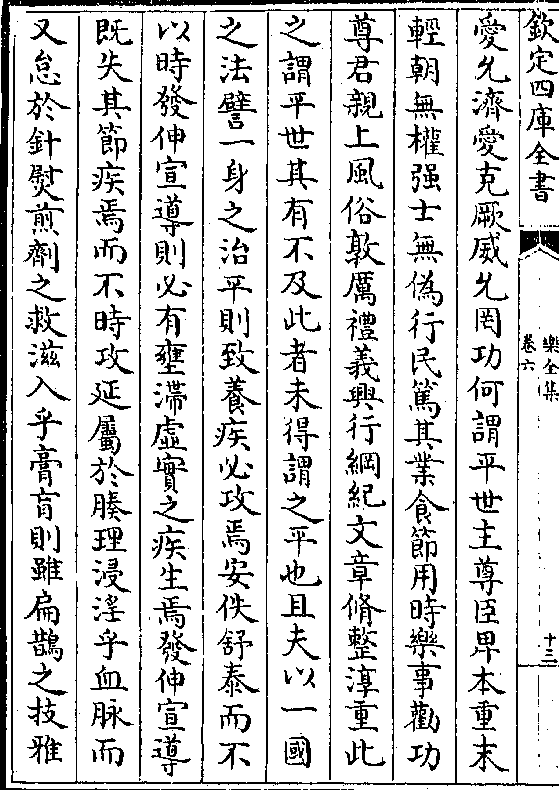 欽定四庫全書
樂全集
卷六
十三
愛允濟愛克厥威允罔功何謂平世主尊臣卑本重末
輕朝無權强士無偽行民篤其業食節用時樂事勸功
尊君親上風俗敦厲禮義興行綱紀文章脩整淳重此
之謂平世其有不及此者未得謂之平也且夫以一國
之法譬一身之治平則致養疾必攻焉安佚舒泰而不
以時發伸宣導則必有壅滯虛實之疾生焉發伸宣導
既失其節疾焉而不時攻延屬於腠理浸淫乎血脉而
又怠於針熨煎劑之救滋入乎膏肓則雖扁鵲之技雅